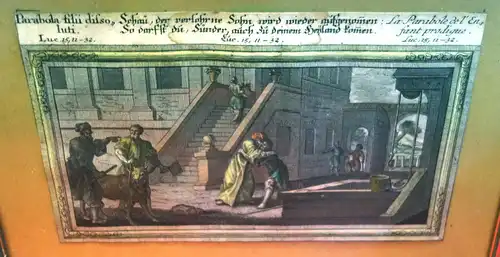 Parabola filii disso,
luti.
Luc. 15, 11-32.
Schau, der verlohrne Sohn, wird wieder aufgenom̄en:
So darfst du, Sünder, auch Zu deinem Heyland kom̄en.
Luc. 15, 11-32.
La Parabole de l'En,
fant prodigue.
Luc. 15, 11-32.